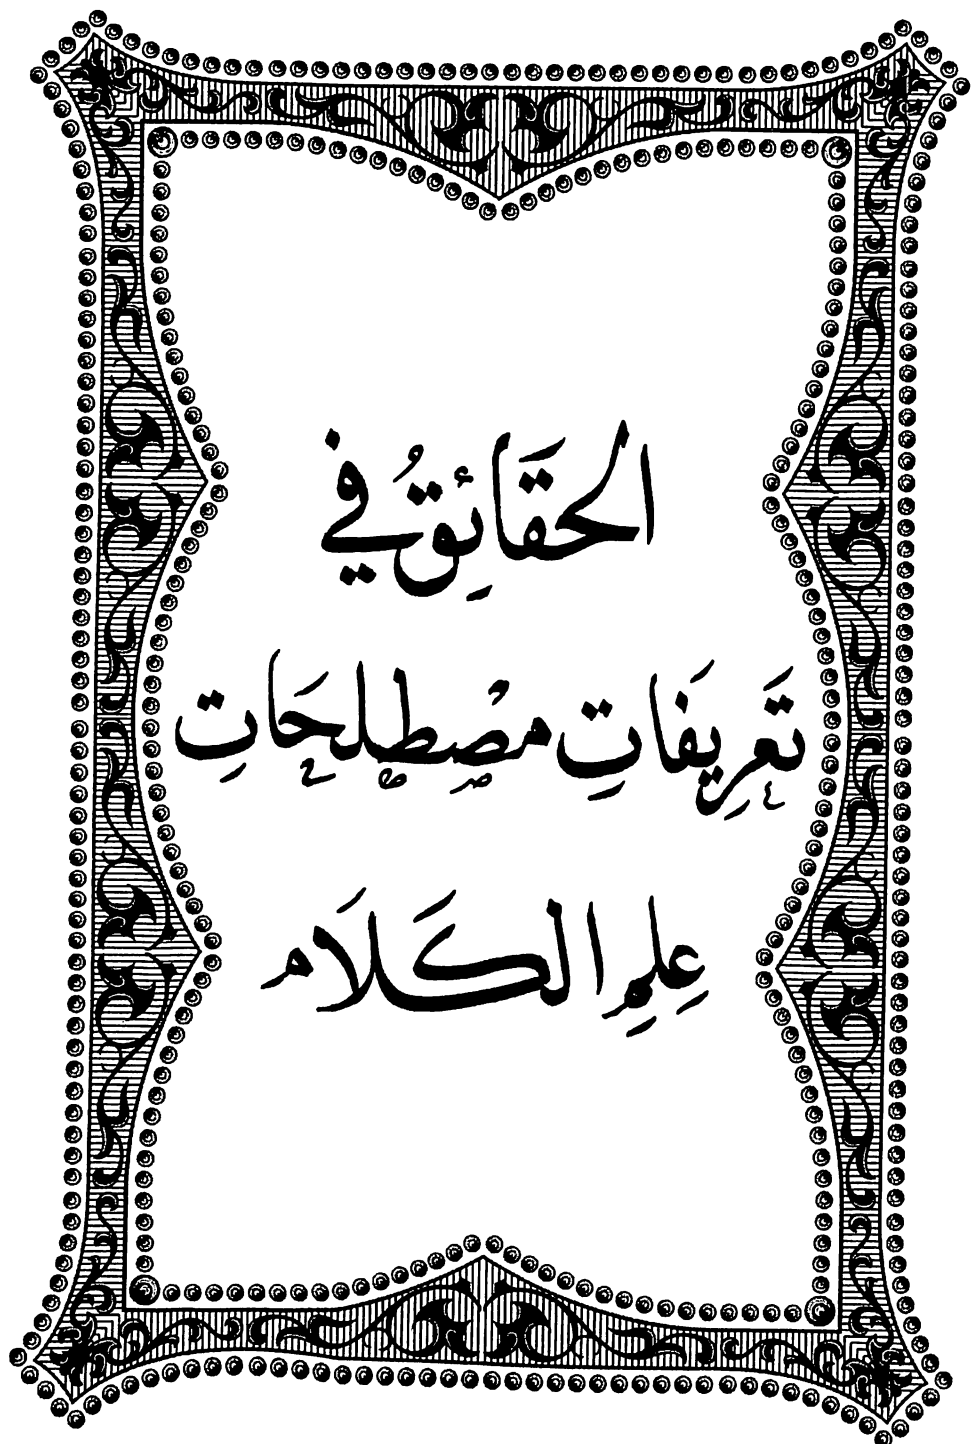 الحَقَائِقُ في
تَعرِيفَاتِ مُصْطلِحَاتِ
عِلمِ الكَلَام